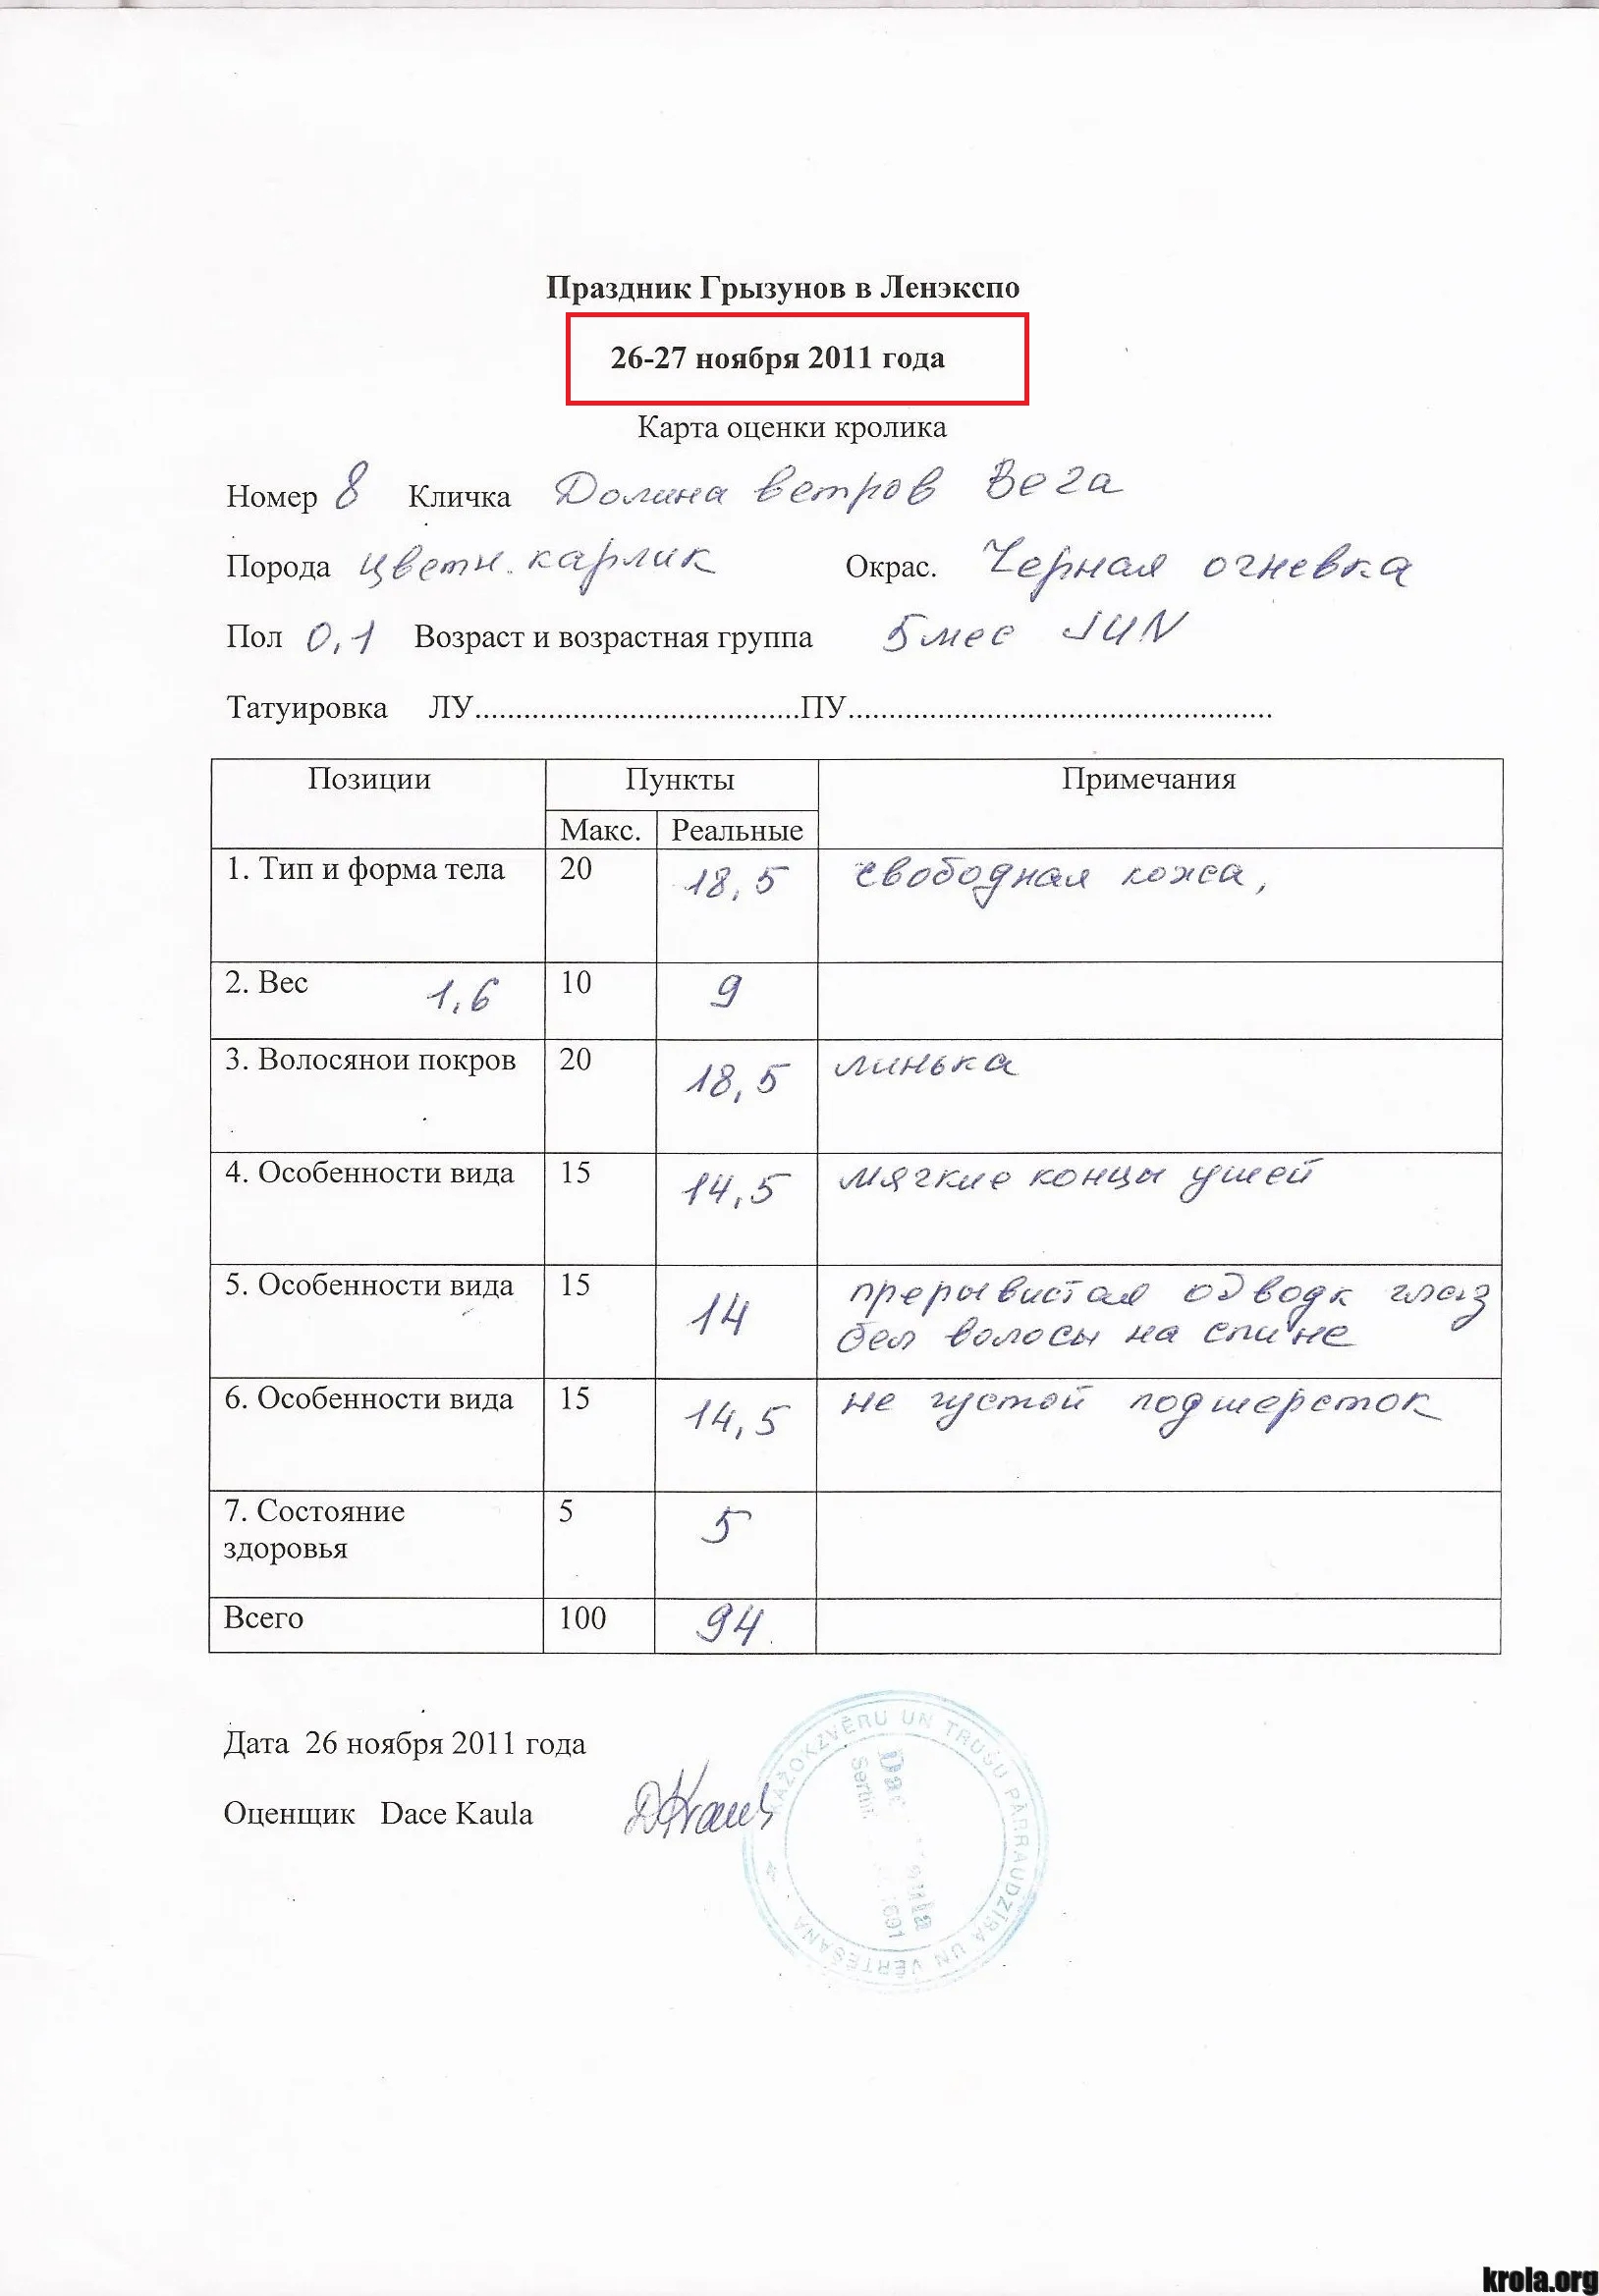 Праздник Грызунов в Ленэкспо
26-27 ноября 2011 года
Карта оценки кролика
Номер 8 Кличка Долина ветров Вега
Порода цветн. карлик Окрас. Черная огневка
Пол 0,1 Возраст и возрастная группа 5 мес JUN
Татуировка ЛУ........................................ПУ....................................................
Позиции Пункты Примечания
Макс. Реальные
1. Тип и форма тела 20 18,5 свободная кожа,
2. Вес 1,6 10 9
3. Волосянои покров 20 18,5 линька
4. Особенности вида 15 14,5 мягкие концы ушей
5. Особенности вида 15 14 прерывистая обводк глаз
бел волосы на спине
6. Особенности вида 15 14,5 не густой подшерсток
7. Состояние 5 5
здоровья
Всего 100 94
Дата 26 ноября 2011 года
Оценщик Dace Kaula
KAŽOKZVĒRU UN TRUŠU PĀRRAUDZĪBA UN VĒRTĒŠANA
krola.org